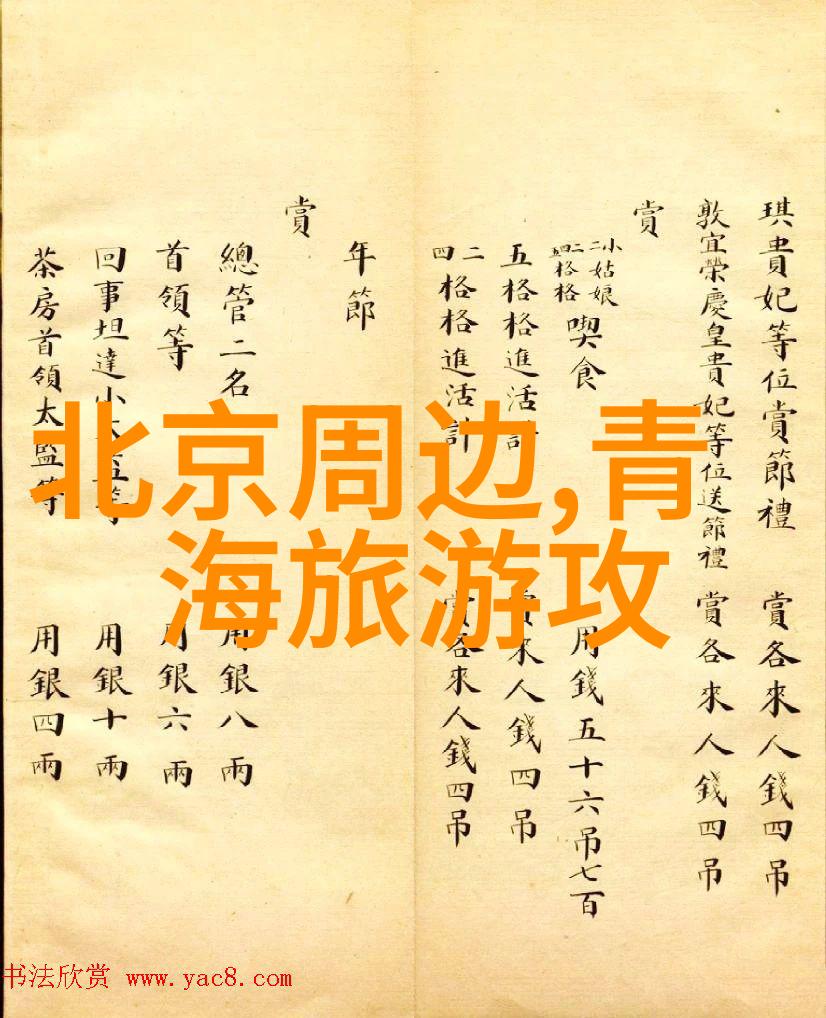 琪貴妃等位賞節禮 賞各來人錢四吊
敦宜榮慶皇貴妃等位送節禮 賞各來人錢四吊
賞
小姑娘
二二格格
四格格
喫食 用錢五十六吊七百
五格格進活計 賞來人錢四吊
二四格格進活計 賞各來人錢四吊
年節
賞
總管二名 用銀八兩
首領等 用銀六兩
回事坦達小 等 用銀十兩
茶房首領太監等 用銀四兩
北京周边,青
海旅游攻
书法欣赏 www.yac8.com